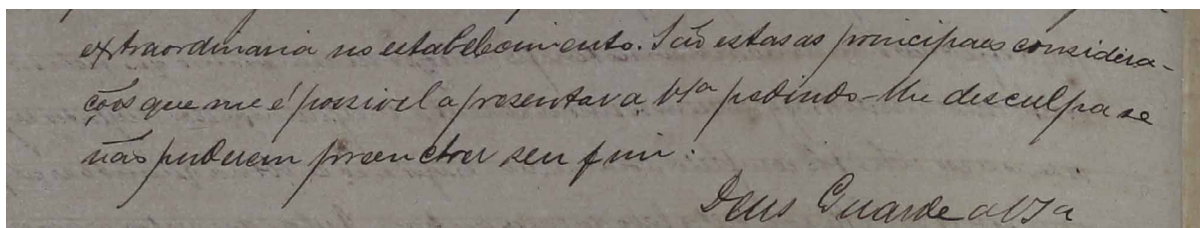 extraordinaria no estabelecimento. São estas as principaes considera-
ções que me é possivel apresentar a VSª pedindo-lhe desculpa se
não puderem preencher seu fim.
Deus Guarde a VSª